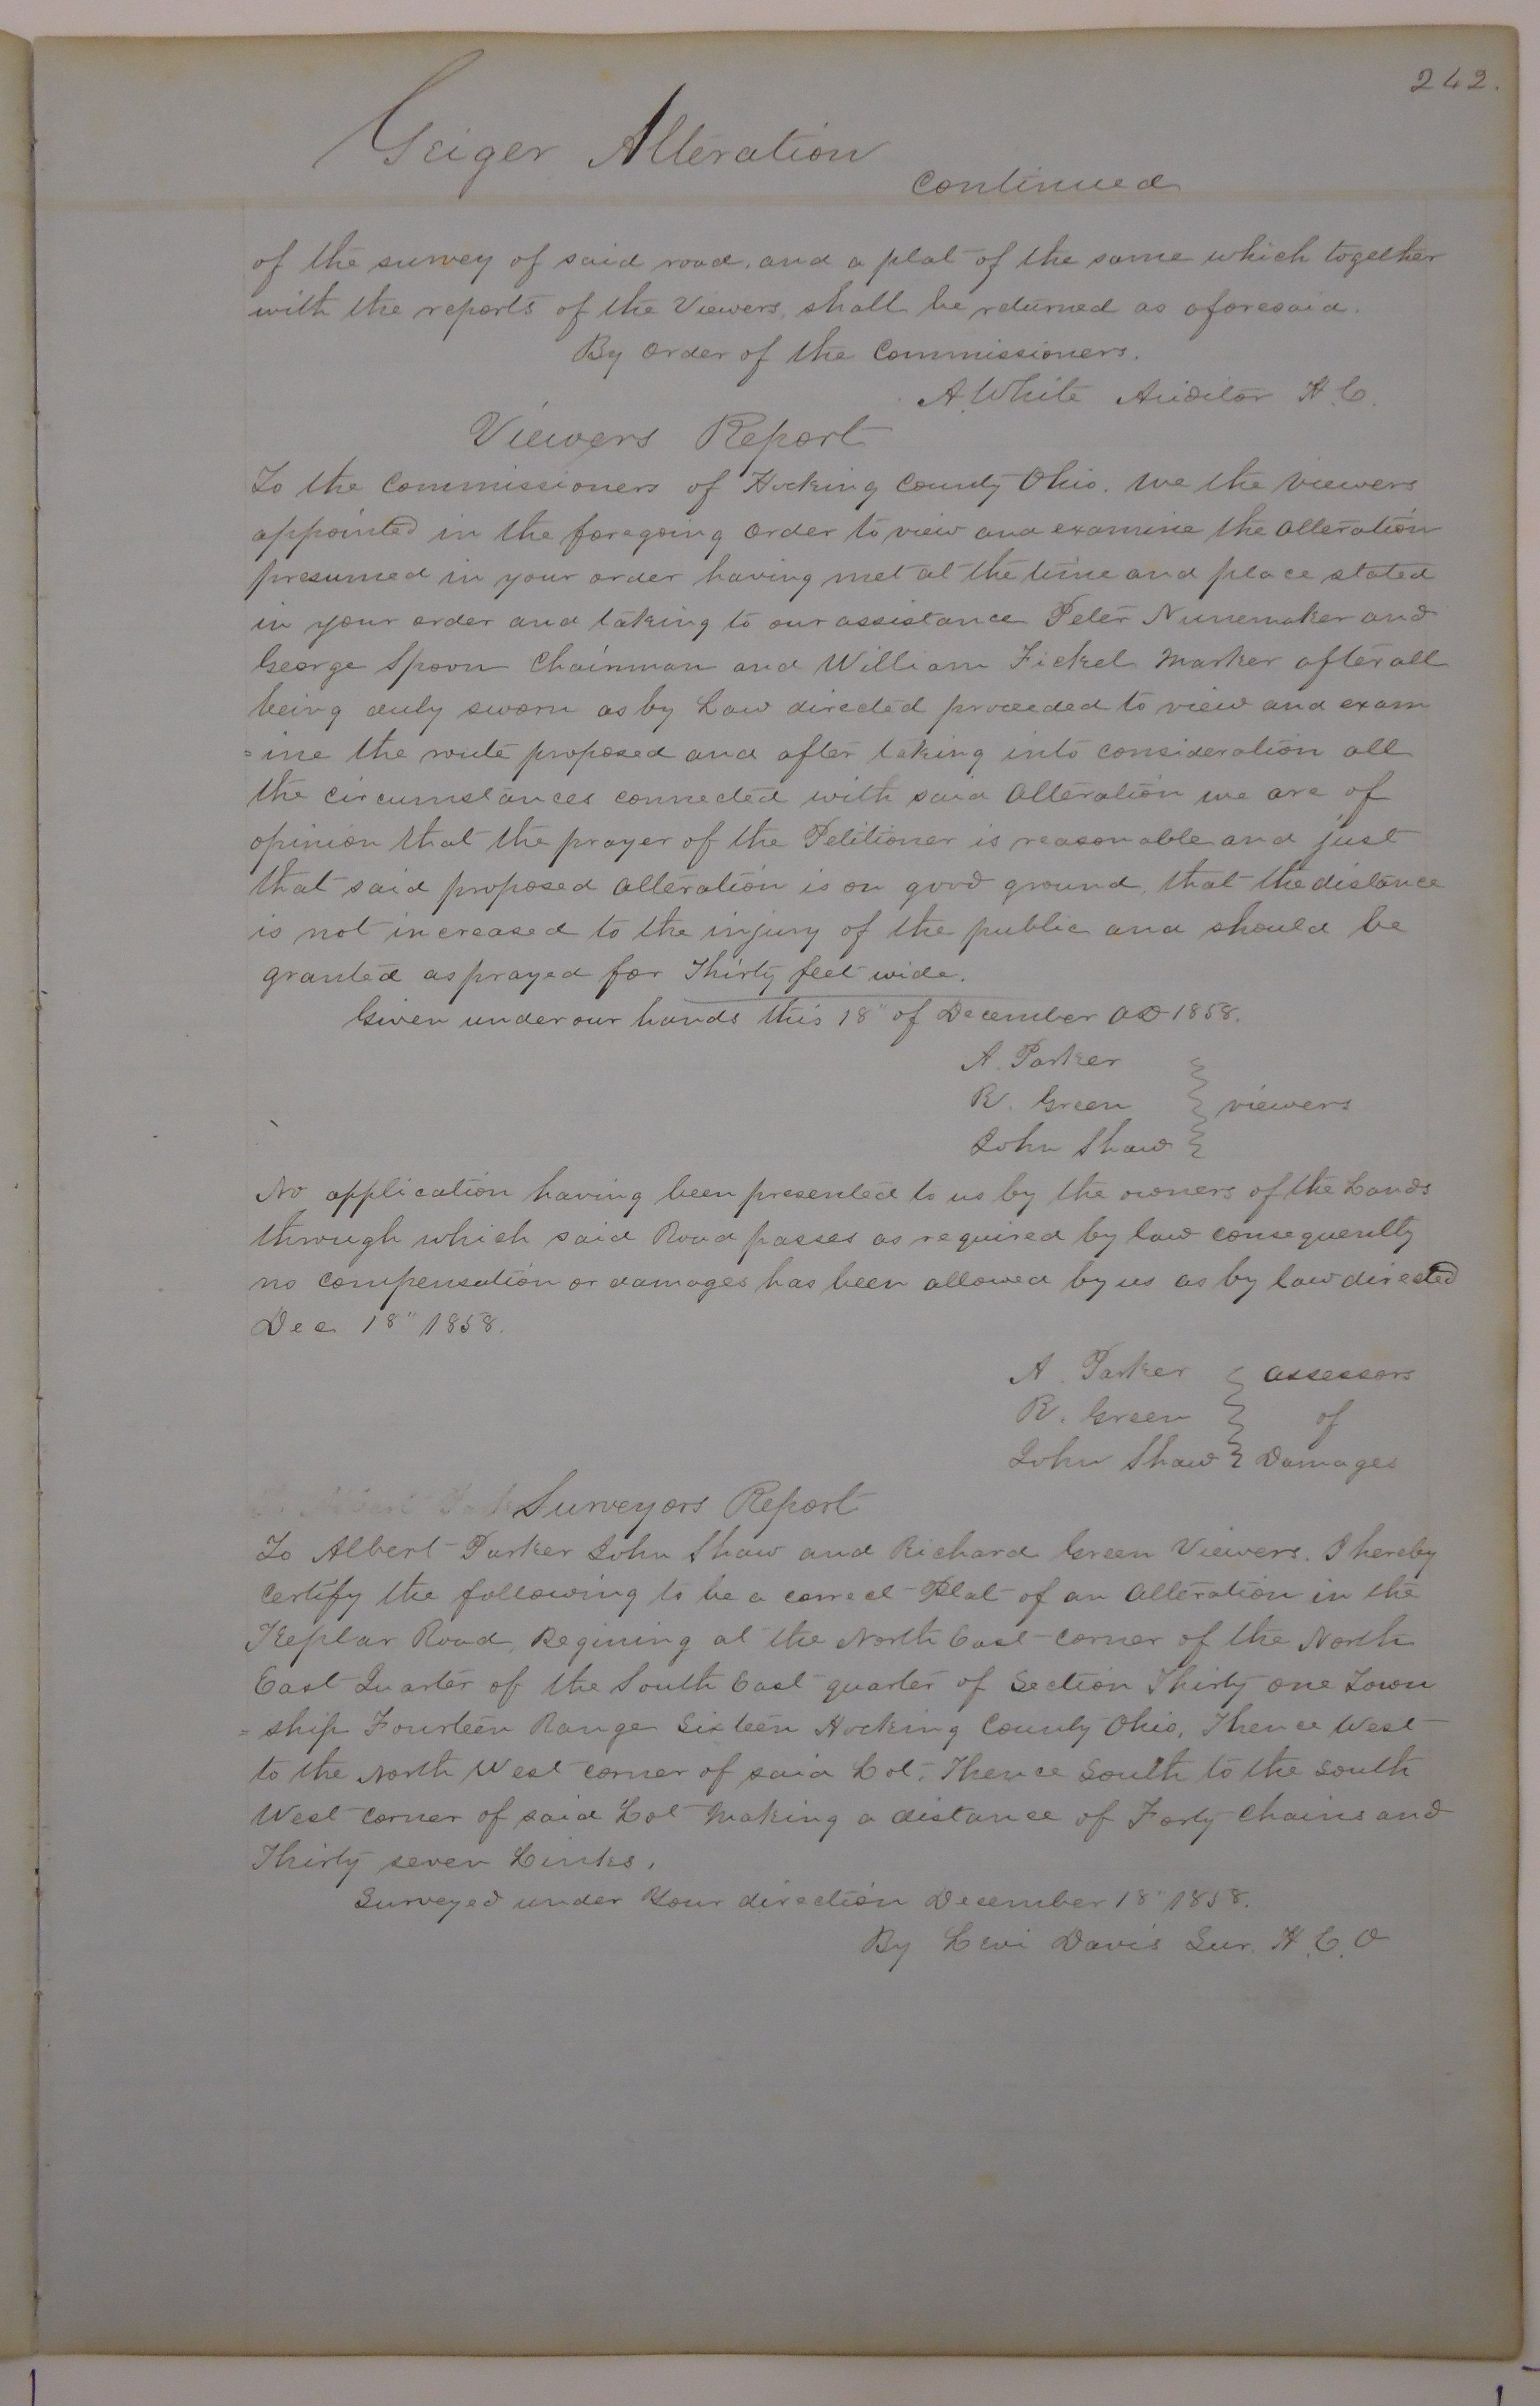 242.
Geiger Alteration
Continued
of the survey of said road, and a plat of the same which together
with the reports of the Viewers, shall be returned as aforesaid.
By Order of the Commissioners.
A. White Auditor H. C.
Viewers Report
To the Commissioners of Hocking County Ohio. We the Viewers
appointed in the foregoing Order to view and examine the Alteration
presumed in your order having met at the time and place stated
in your order and taking to our assistance Peter Nunemaker and
George Spoon Chainman and William Fickel Marker after all
being duly sworn as by Law directed proceeded to view and exam
=ine the route proposed and after taking into Consideration all
the Circumstances connected with said Alteration we are of
opinion that the prayer of the Petitioner is reasonable and just
that said proposed Alteration is on good ground, that the distance
is not increased to the injury of the public and should be
granted as prayed for Thirty feet wide.
Given under our hands this 18" of December AD 1858.
A. Parker
R. Green } viewers
John Shaw
No application having been presented to us by the owners of the Lands
through which said Road passes as required by law consequently
no compensation or damages has been allowed by us as by law directed
Dec 18" 1858.
A. Parker } assessors
R. Green } of
John Shaw } Damages
Surveyors Report
To Albert Parker John Shaw and Richard Green Viewers. I hereby
Certify the following to be a correct Plat of an Alteration in the
Keplar Road, Begining at the North East corner of the North
East Quarter of the South East quarter of Section Thirty one Town
=ship Fourteen Range Sixteen Hocking County Ohio, Thence West
to the North West corner of said Lot, Thence South to the South
West Corner of said Lot Making a distance of Forty Chains and
Thirty seven Links.
Surveyed under Your direction December 18" 1858.
By Levi Davis Sur. H. C. O